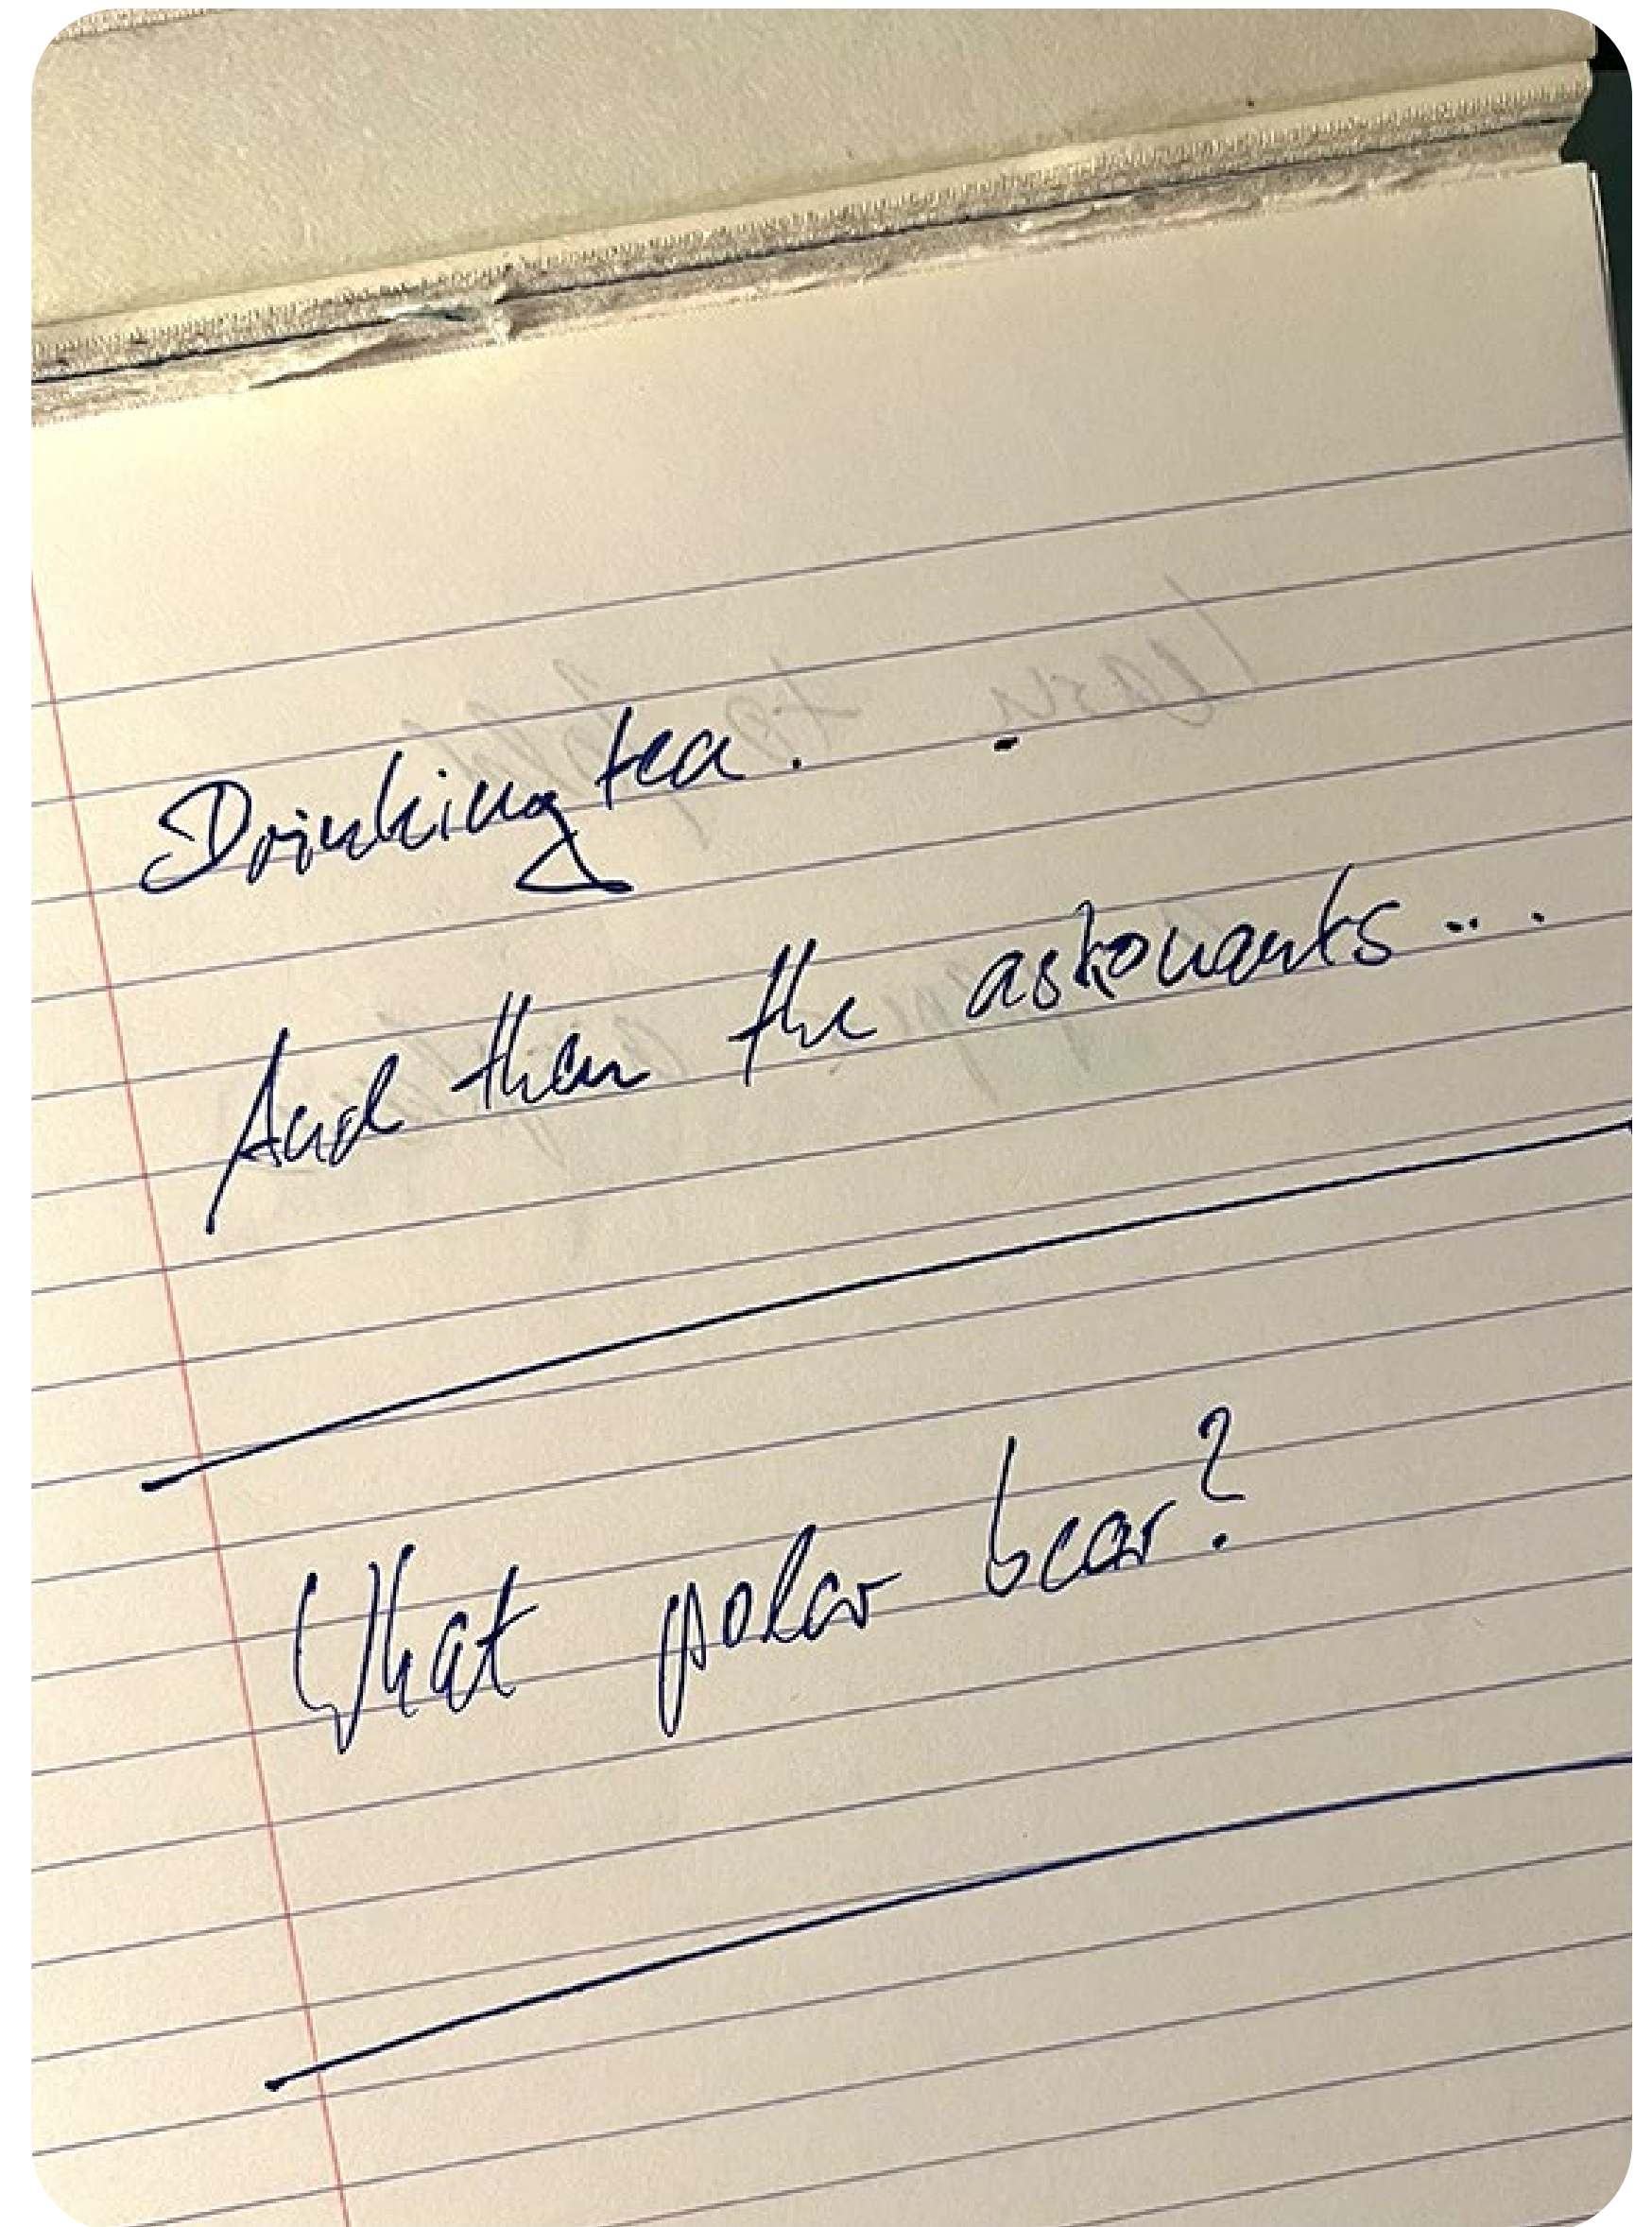 Drinking tea.
And then the astronauts...
What polar bear?